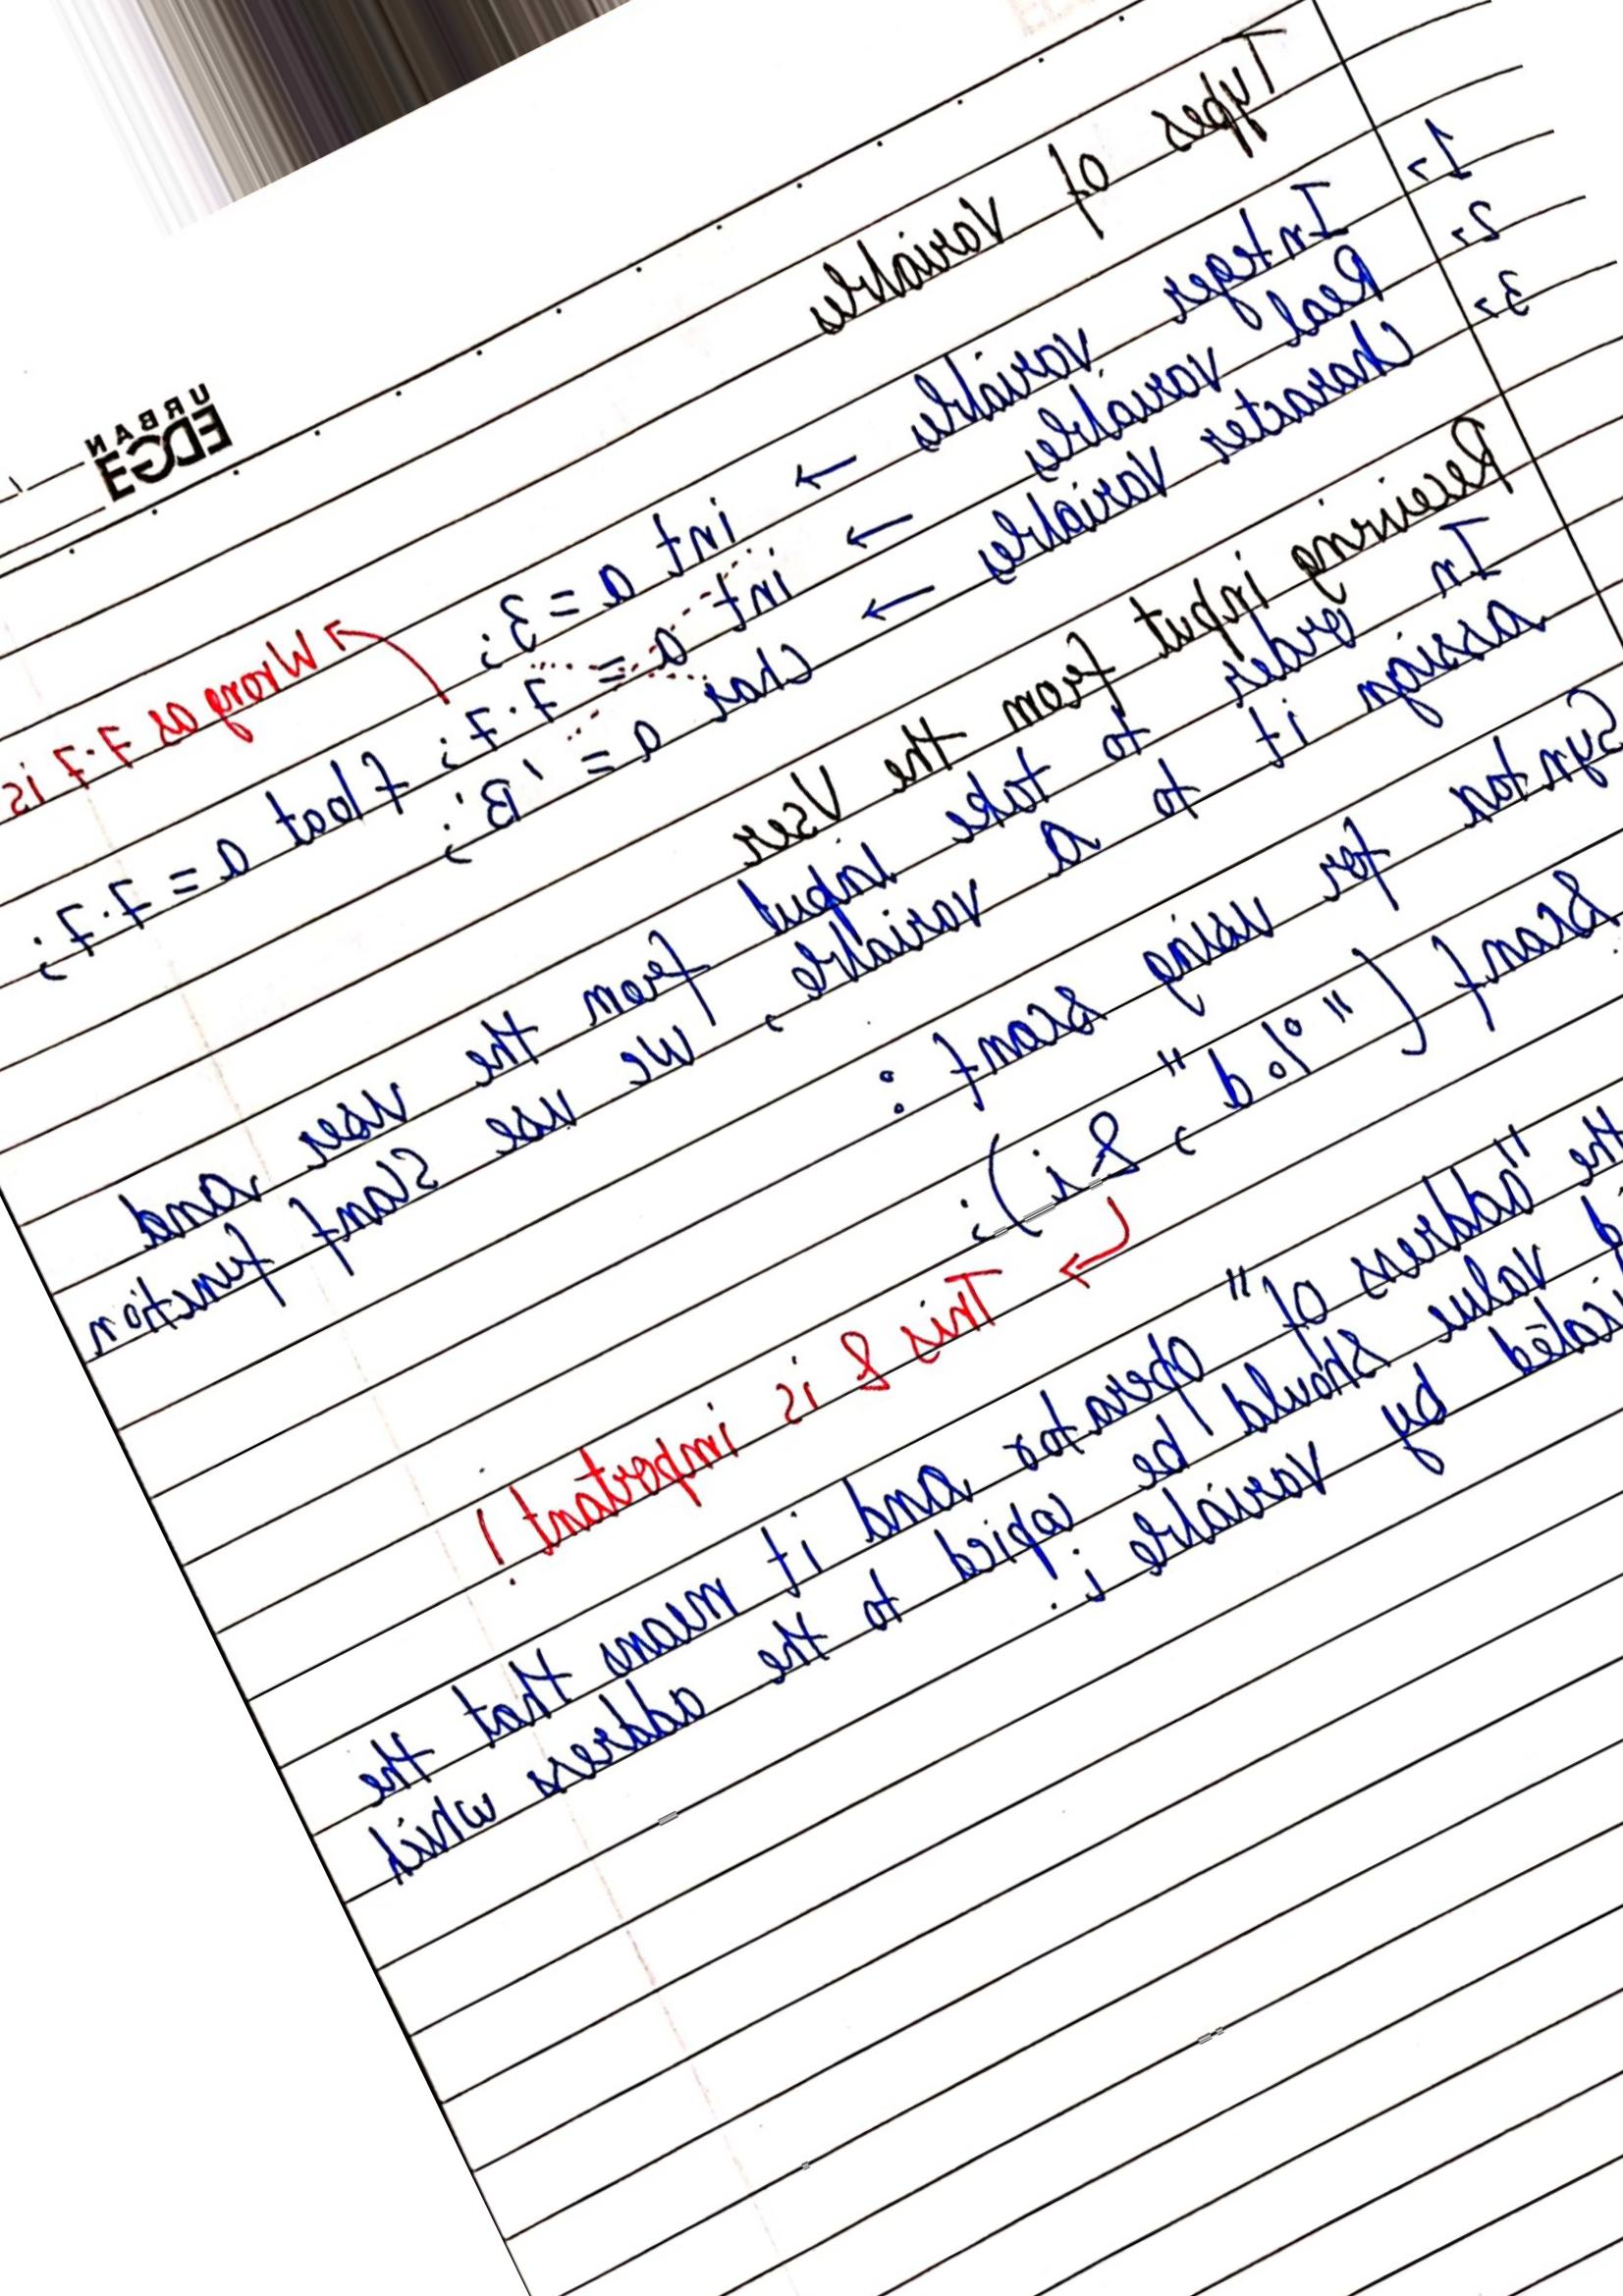 URBAN
EDGE
Types of Variable
1> Integer variable → int a = 3;
2> Real variable → int a = 7.7; float a = 7.7;
Wrong as 7.7 is
3> Character Variable → char a = 'B';
Recieving input from the User
In order to take input from the user and
assign it to a variable, we use Scanf function
Syntax for using Scanf :
Scanf ("%d", & i);
This & is important !
the "address of" operator and it means that the
value should be copied to the address which
by variable i.